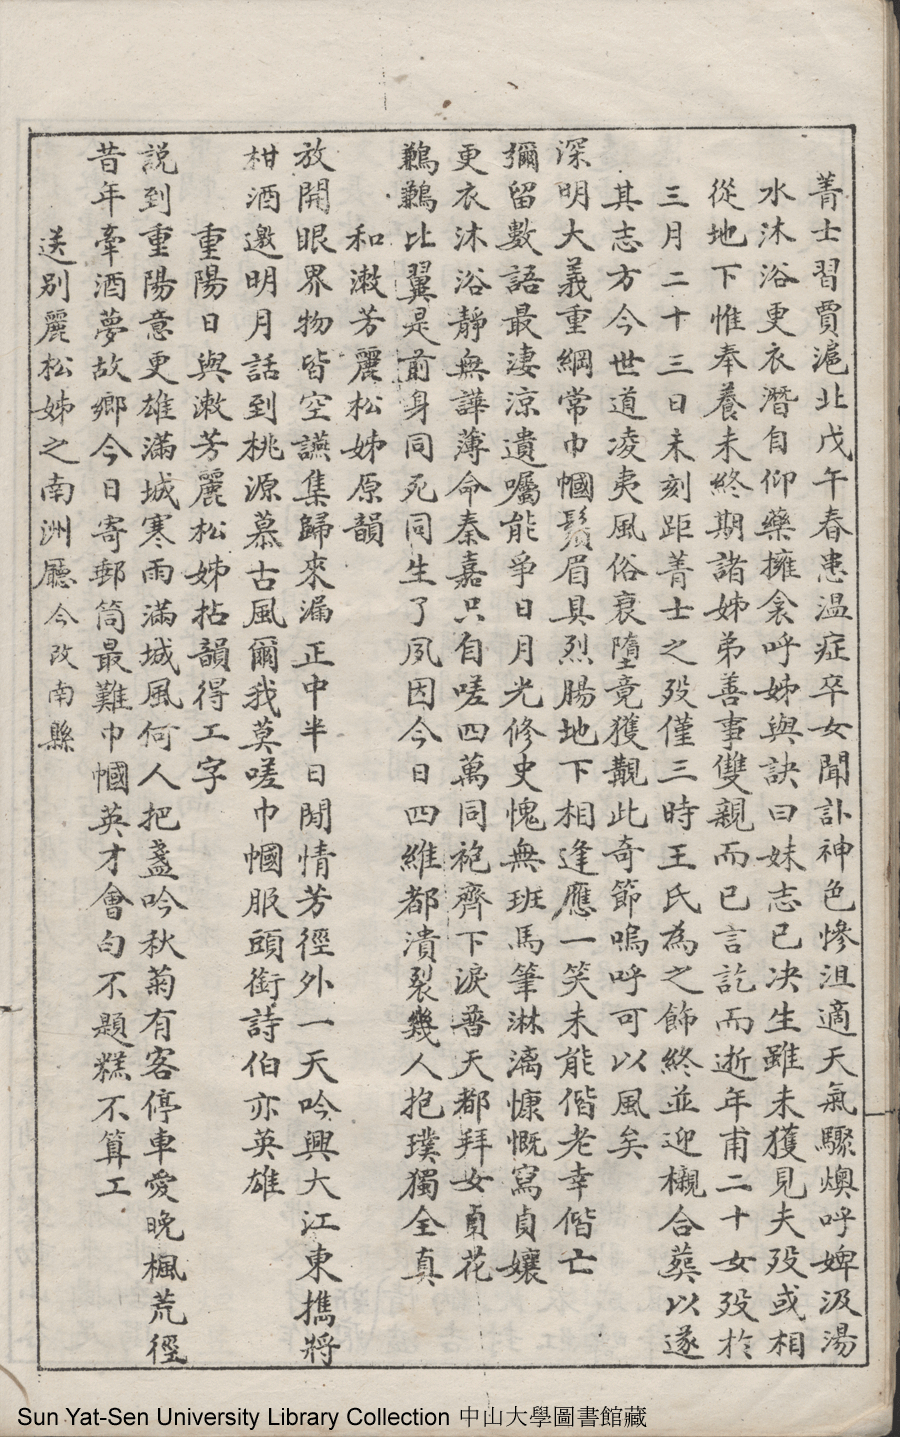 菁士習賈滬北戊午春患温症卒女聞訃神色慘沮適天氣驟燠呼婢汲湯
水沐浴更衣潛自仰藥擁衾呼姊與訣曰妹志已决生雖未獲見夫歿或相
從地下惟奉養未終期諸姊弟善事雙親而已言訖而逝年甫二十女歿於
三月二十三日未刻距菁士之歿僅三時王氏為之飾終並迎櫬合葬以遂
其志方今世道凌夷風俗衰墮竟獲覯此奇節嗚呼可以風矣
深明大義重綱常巾幗鬚眉具烈腸地下相逢應一笑未能偕老幸偕亡
彌留數語最淒涼遺囑能爭日月光修史愧無班馬筆淋漓慷慨寫貞孃
更衣沐浴靜無譁薄命秦嘉只自嗟四萬同袍齊下淚普天都拜女貞花
鶼鶼比翼是前身同死同生了夙因今日四維都潰裂幾人抱璞獨全真
和漱芳麗松姊原韻
放開眼界物皆空讌集歸來漏正中半日閒情芳徑外一天吟興大江東攜將
柑酒邀明月話到桃源慕古風爾我莫嗟巾幗服頭銜詩伯亦英雄
重陽日與漱芳麗松姊拈韻得工字
說到重陽意更雄滿城寒雨滿城風何人把盞吟秋菊有客停車愛晚楓荒徑
昔年牽酒夢故鄉今日寄郵筒最難巾幗英才會句不題糕不算工
送別麗松姊之南洲廳今改南縣
Sun Yat-Sen University Library Collection 中山大學圖書館藏